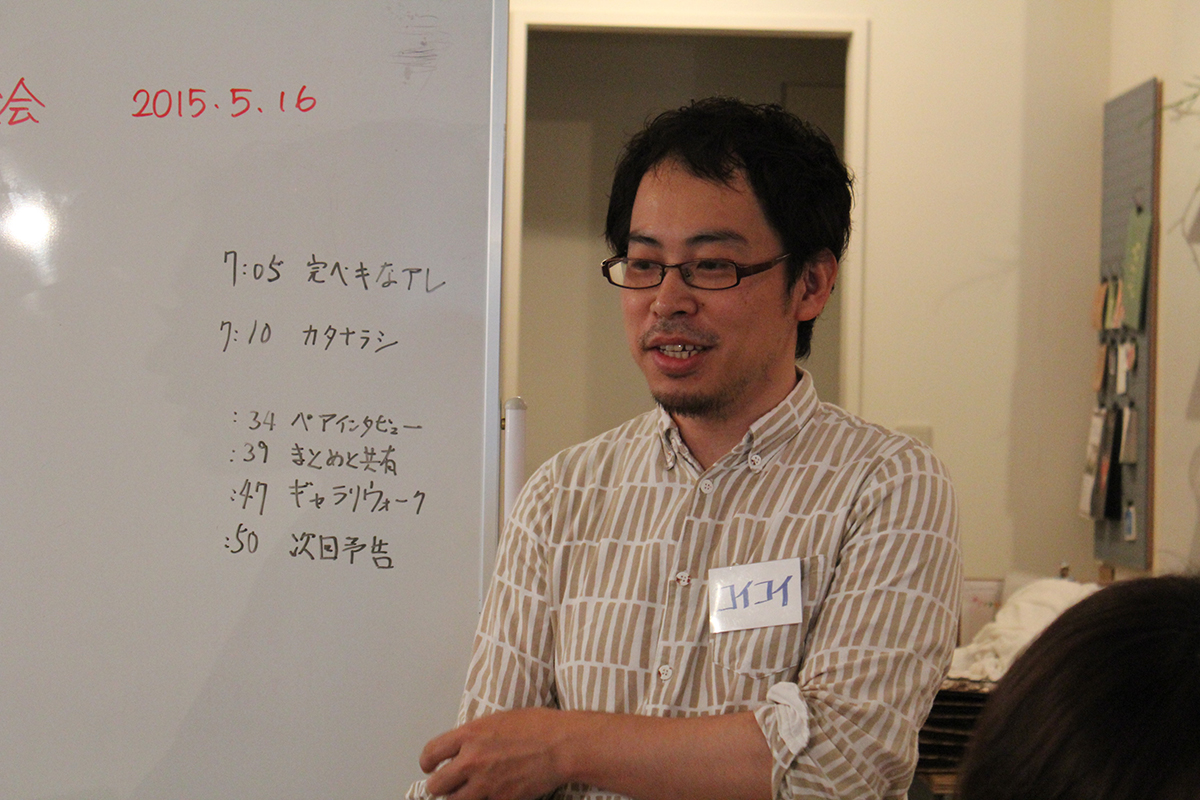 会 2015.5.16
7:05 完ペキなアレ
7:10 カタナラシ
:34 ペアインタビュー
:39 まとめと共有
:47 ギャラリウォーク
:50 次回予告
コイコイ